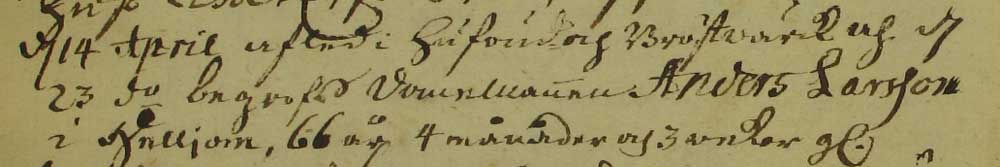 d 14 April afled i Hufvud och Bröstvärck och d
23 do begrofs Domelmannen Anders Larsson
i Helljom, 66 år, 4 månader och 3 vekor gl: